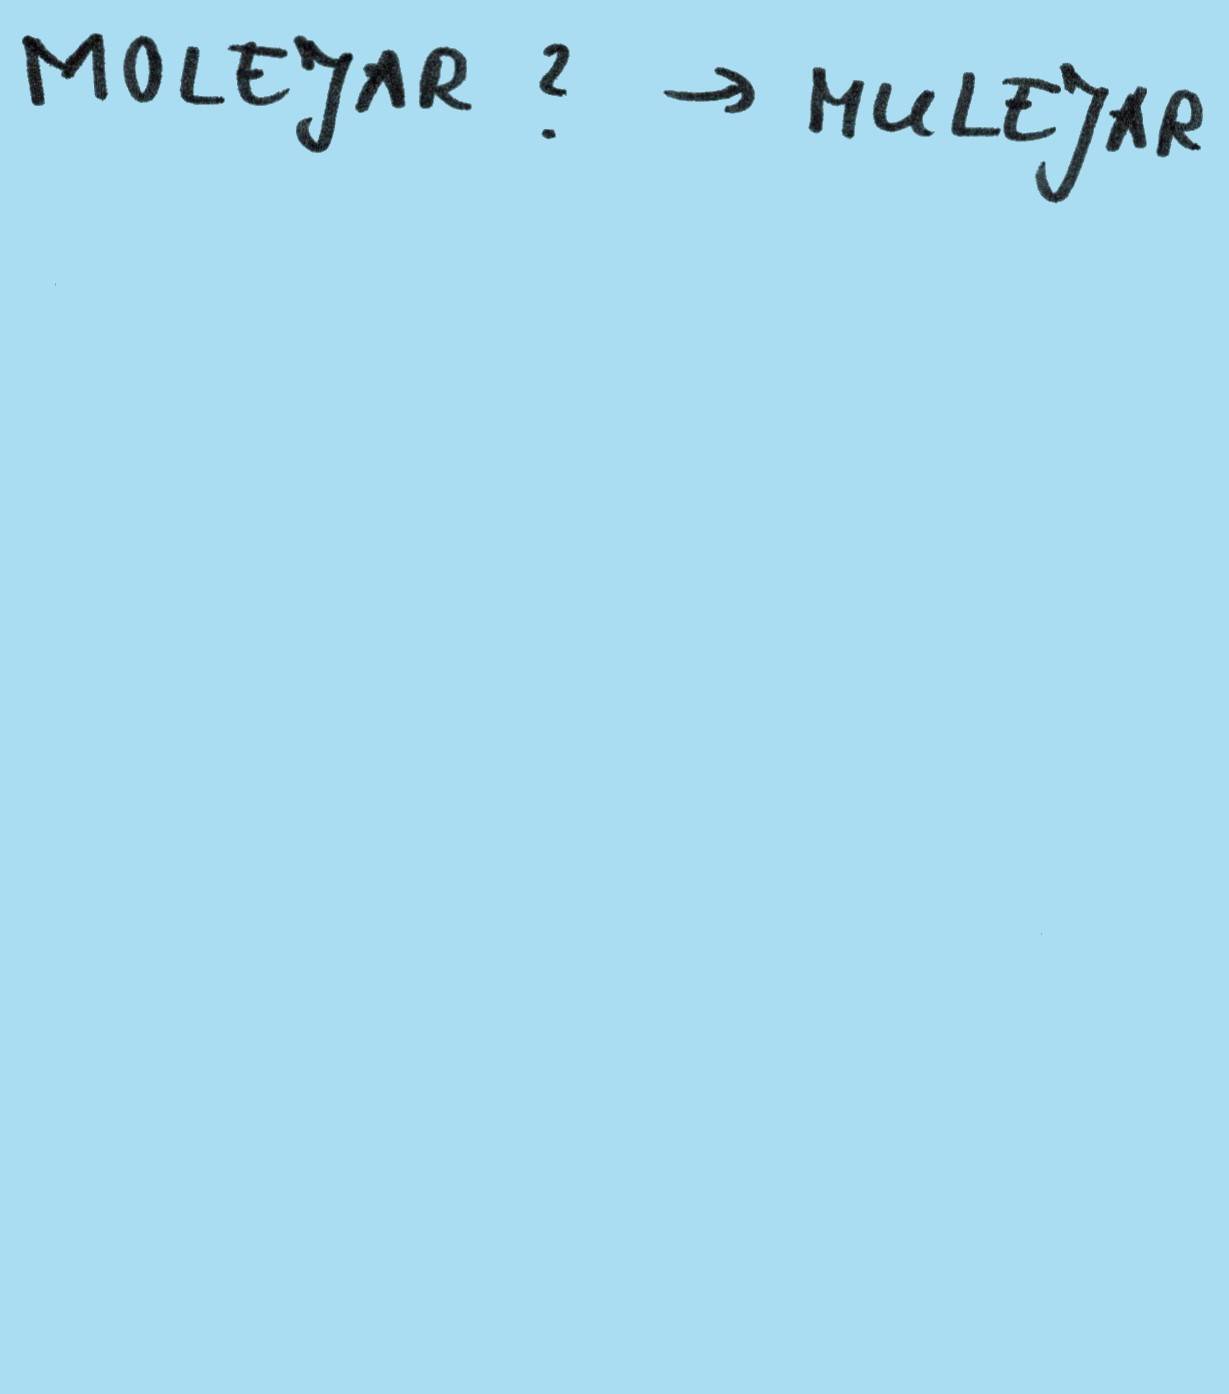 MOLEJAR ? → MULEJAR